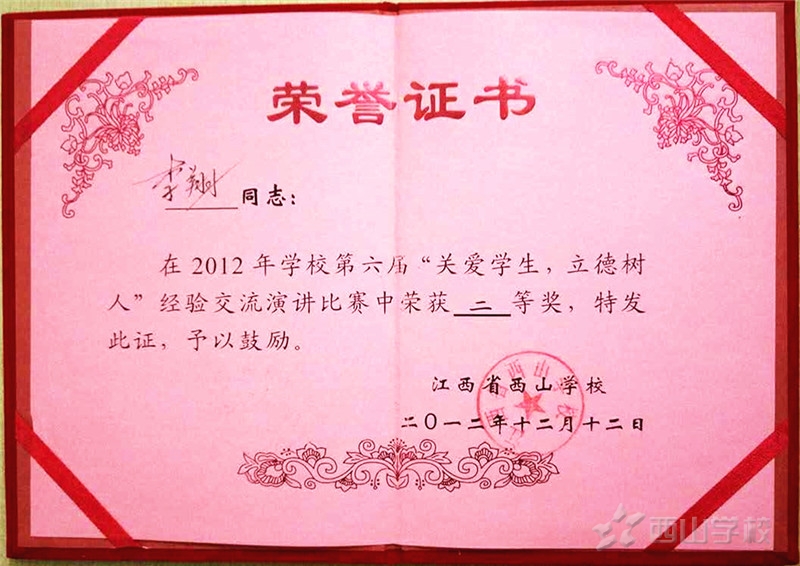 荣誉证书
李翔 同志：
在2012年学校第六届“关爱学生，立德树
人”经验交流演讲比赛中荣获 二 等奖，特发
此证，予以鼓励。
江西省西山学校
二〇一二年十二月十二日
江西省西山学校
西山学校